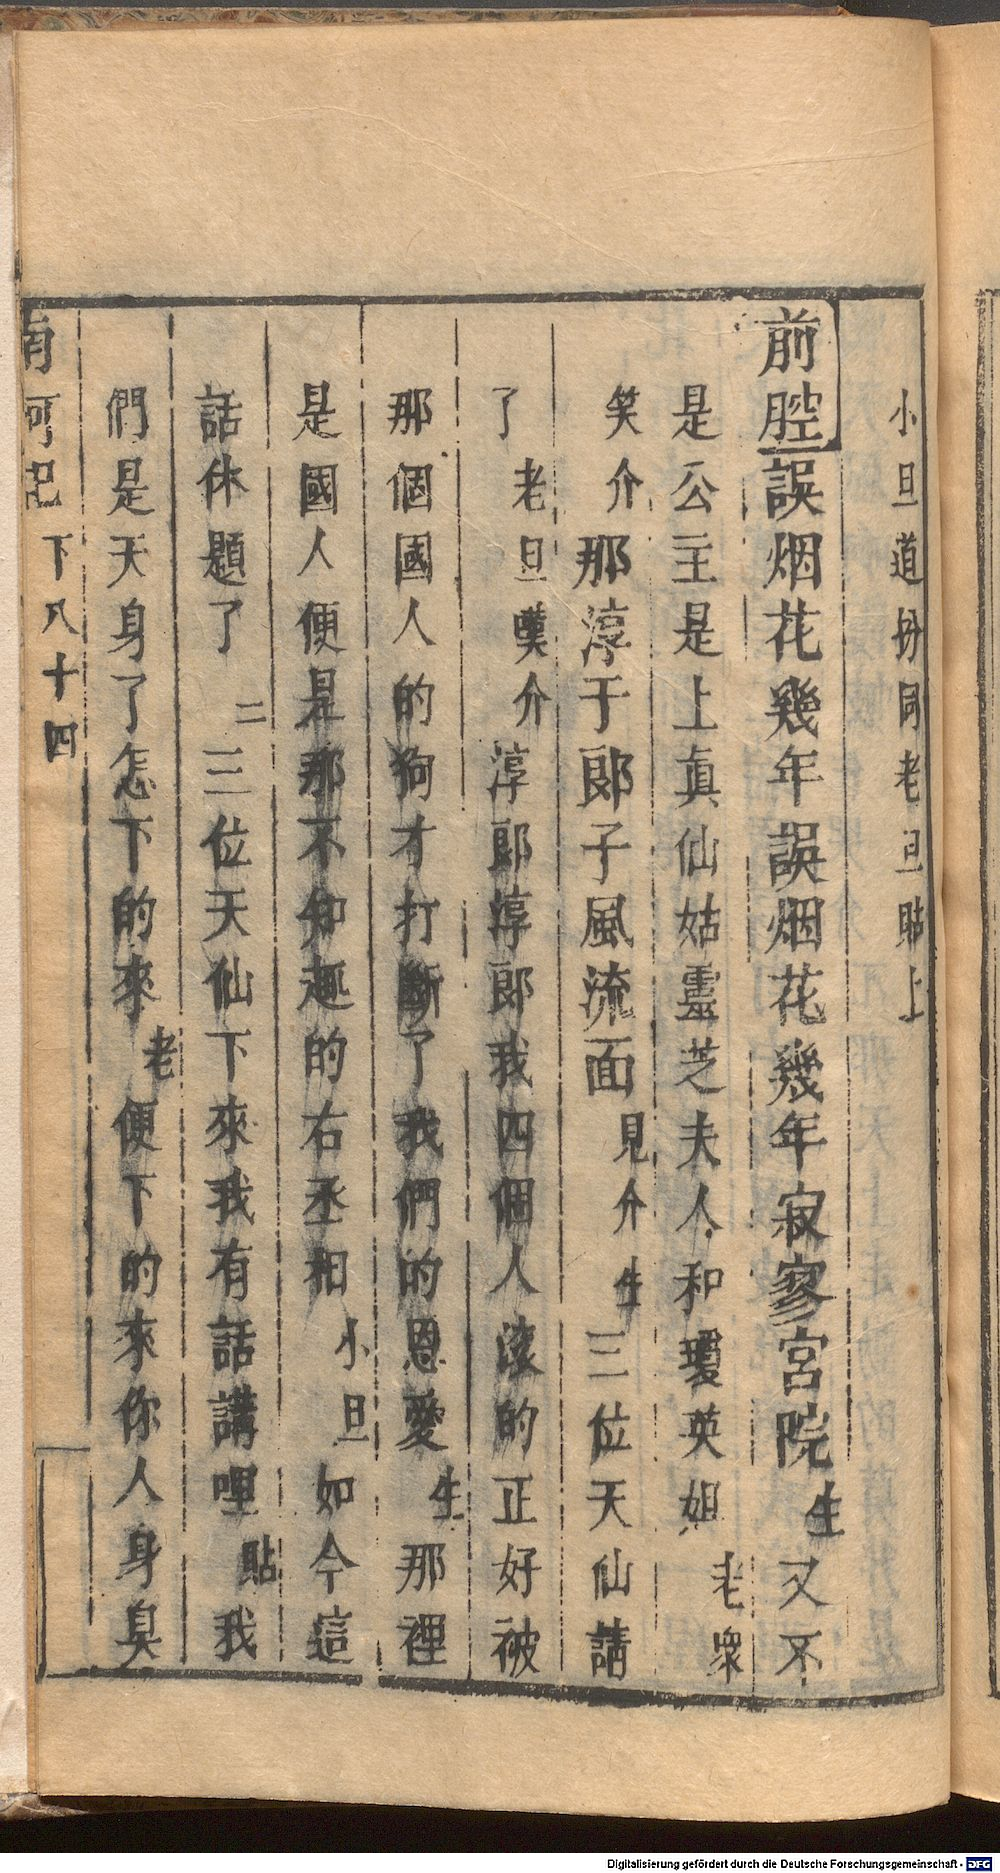 小旦道扮同老旦貼上
前腔誤烟花幾年誤烟花幾年寂寥宮院生又不
是公主是上眞仙姑靈芝夫人和瓊英姐老衆
笑介那淳于郞子風流面見介生三位天仙請
了老旦嘆介淳郞淳郞我四個人滚的正好被
那個國人的狗才打斷了我們的恩愛生那裡
是國人便是那不知趣的右丞相小旦如今這
話休題了二三位天仙下來我有話講哩貼我
們是天身了怎下的來老便下的來你人身臭
南柯記 下 八十四
Digitalisierung gefördert durch die Deutsche Forschungsgemeinschaft - DFG